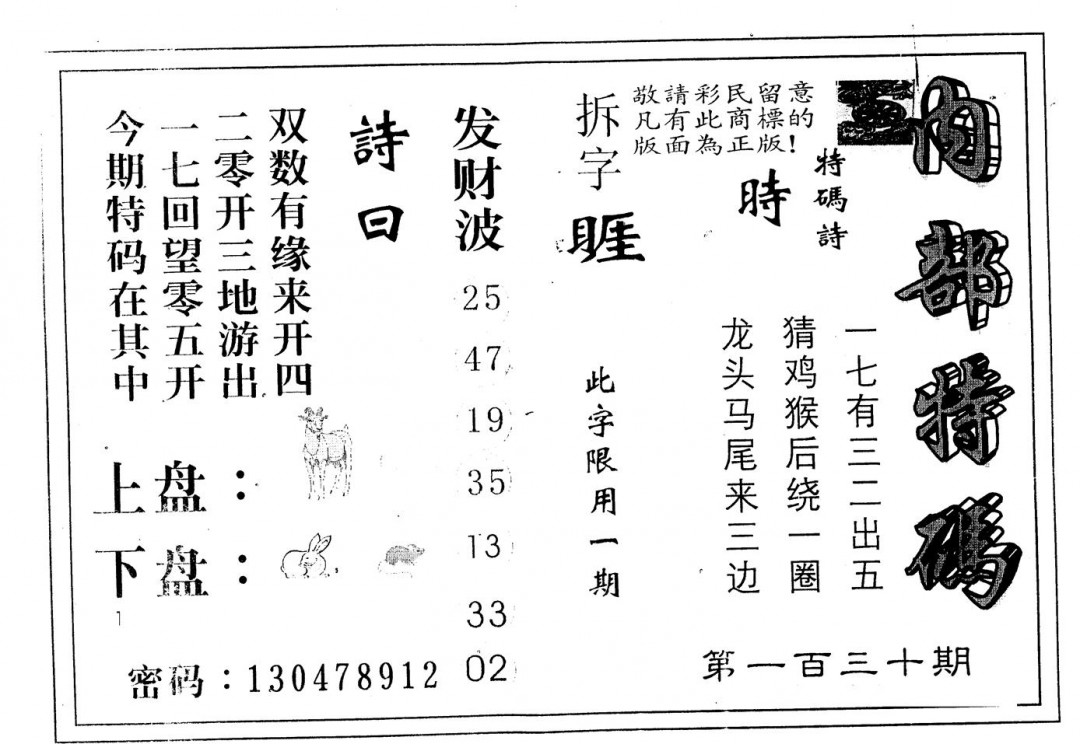 内部特碼
敬請彩民留意
凡有此商標的
版面為正版!
特碼詩
時
一七有三二出五
猜鸡猴后绕一圈
龙头马尾来三边
第一百三十期
拆字
睚
此字限用一期
发财波
25
47
19
35
13
33
02
詩曰
双数有缘来开四
二零开三地游出
一七回望零五开
今期特码在其中
上盘：
下盘：
密码：130478912